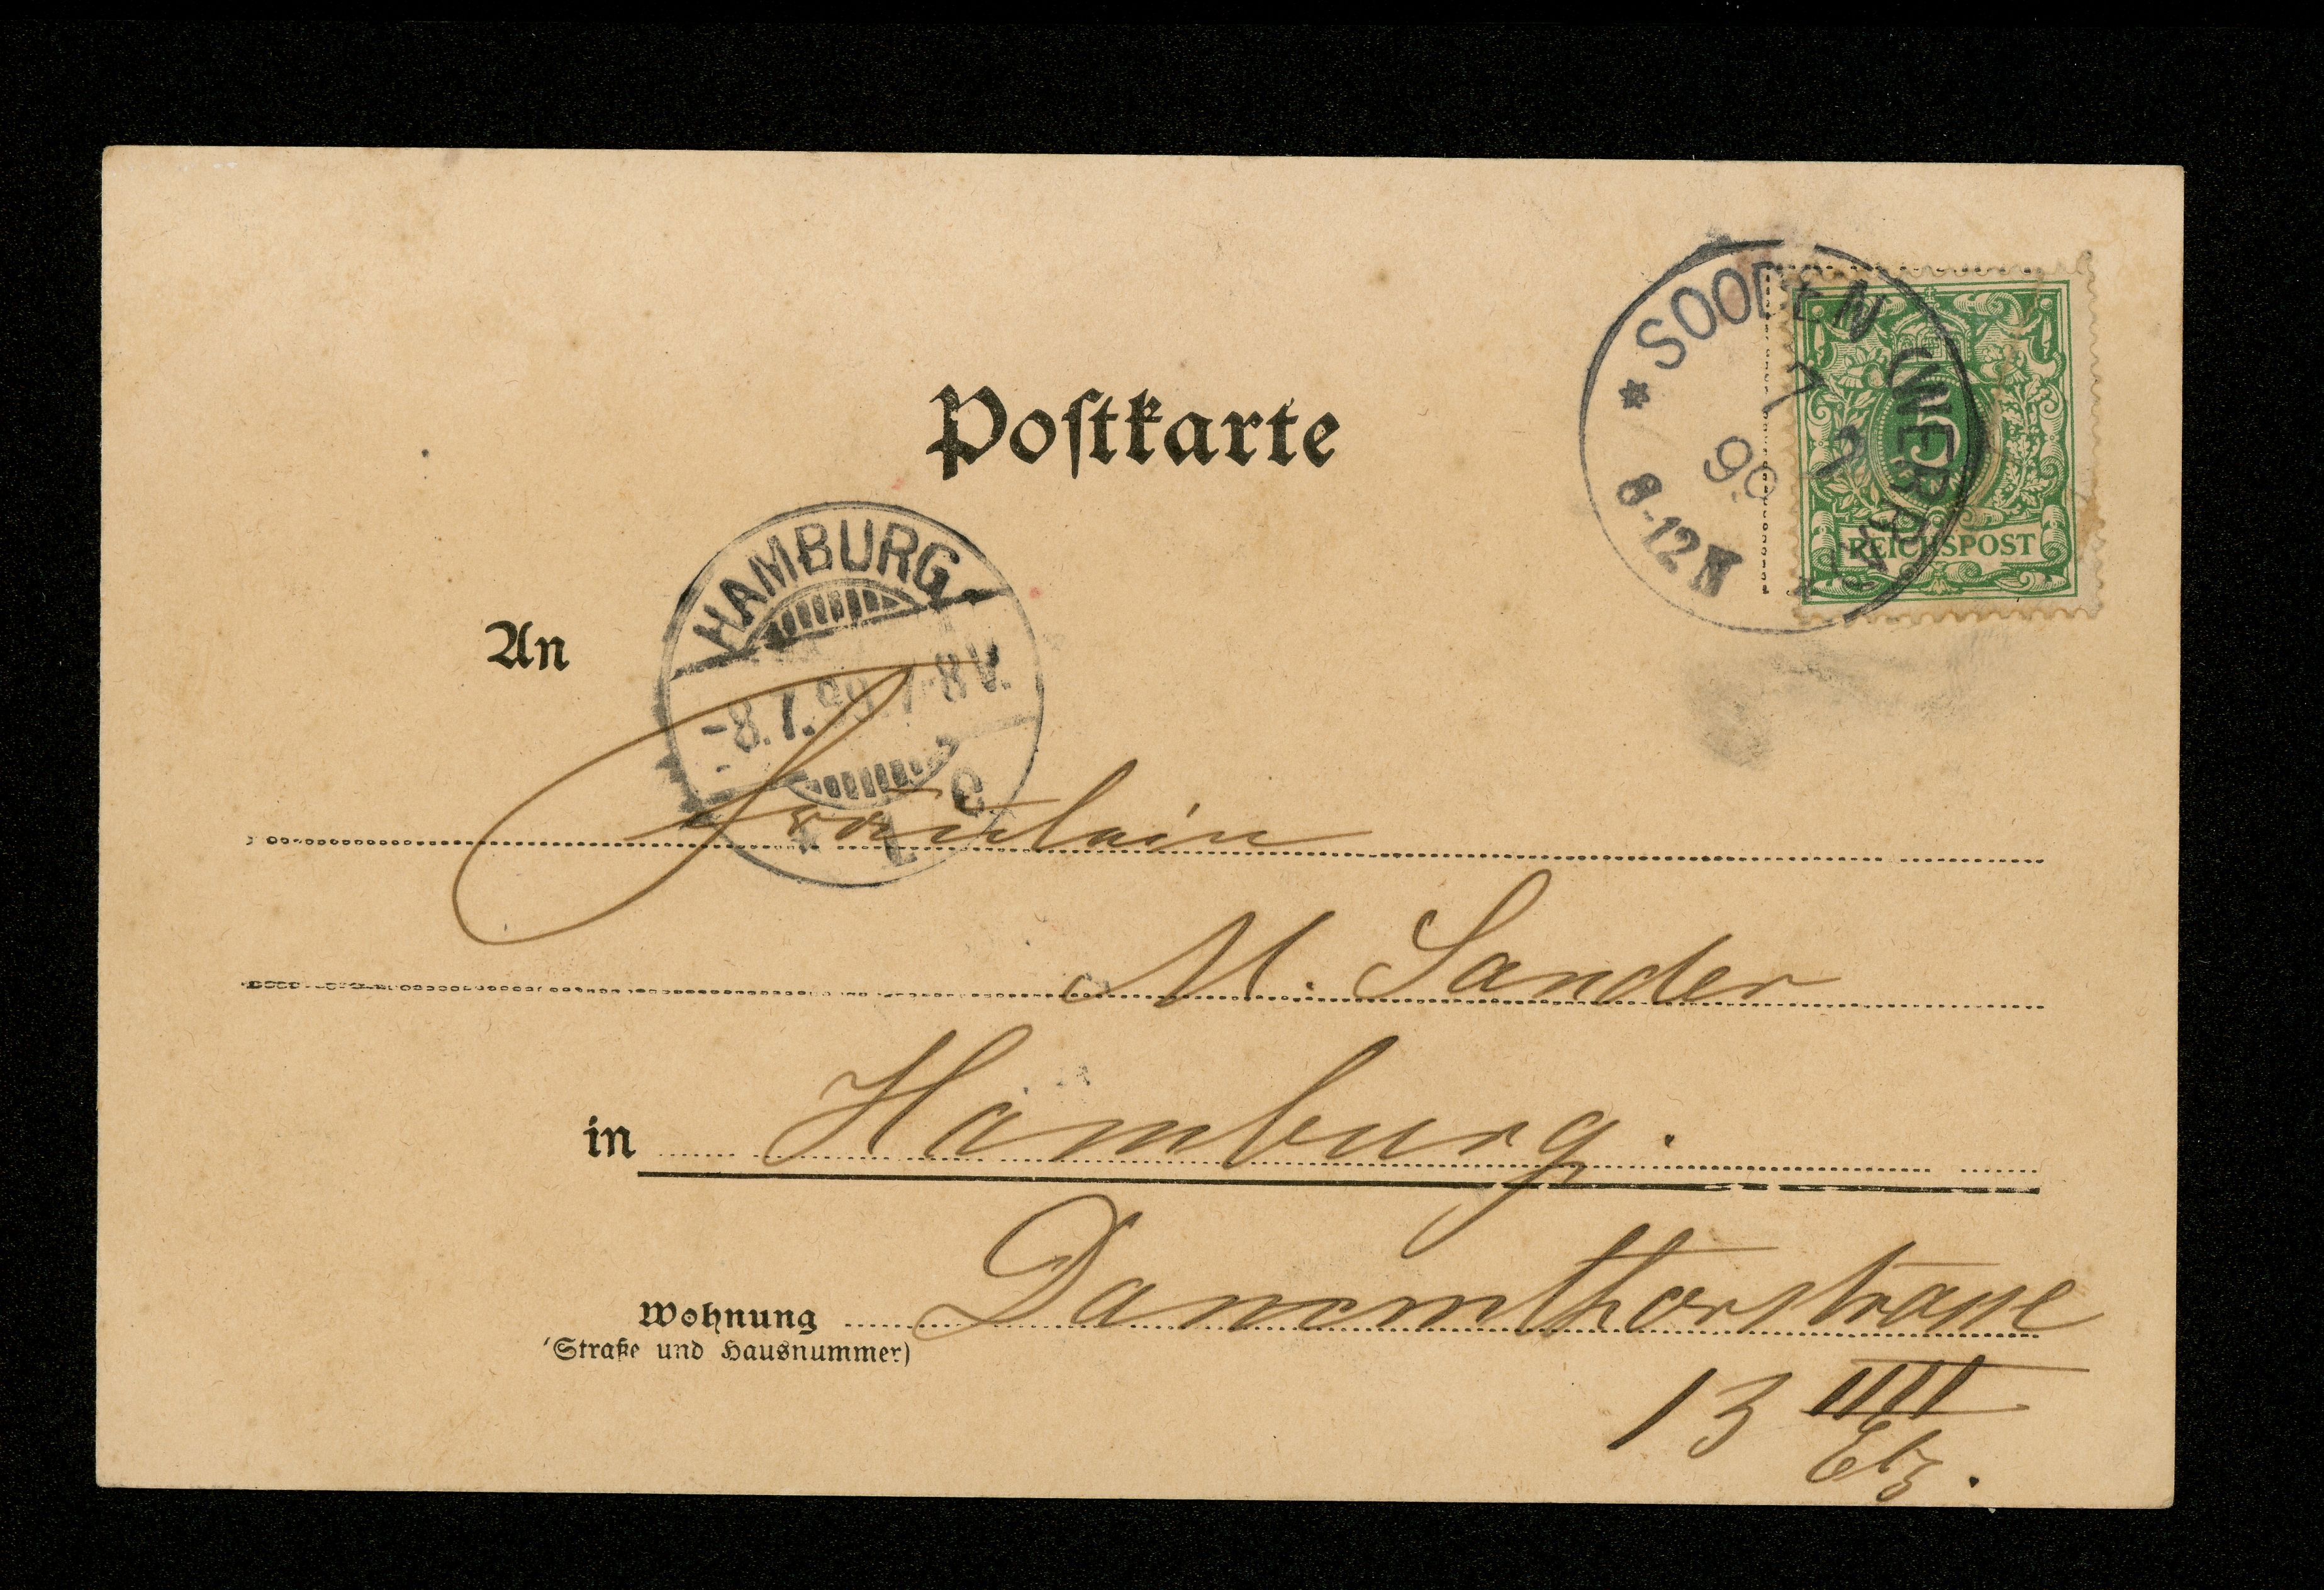 Postkarte
* SOODEN (WERRA)
7 7
99
8-12 N
5
REICHSPOST
HAMBURG
-8.7.99.7-8V.
* 1
An
Fräulein
M. Sander
in Hamburg.
Wohnung Dammthorstrasse
(Straße und Hausnummer)
13 IIII
Etg.